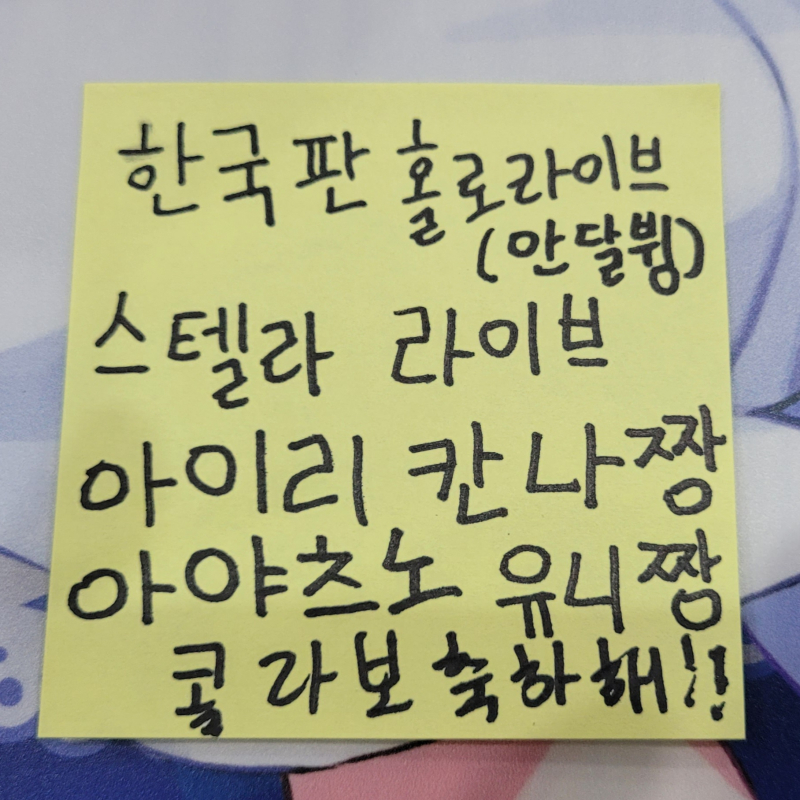 한국판 홀로라이브
(안달뷤)
스텔라 라이브
아이리 칸나짱
아야츠노 유니짱
콜라보 축하해!!